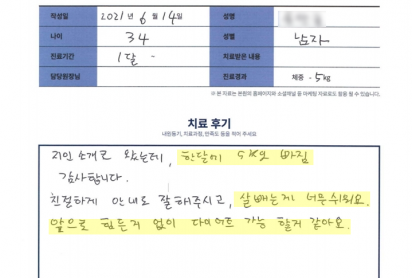 작성일 2021년 6월 14일 성명
나이 34 성별 남자
진료기간 1달 - 치료받은 내용
담당원장님 진료경과 체중 - 5kg
※ 본 자료는 본원의 홈페이지와 소셜채널 등 마케팅 자료로도 활용 될 수 있습니다.
치료 후기
내원동기, 치료과정, 만족도 등을 적어 주세요
지인 소개로 왔는데, 한달에 5kg 빠짐
감사합니다.
친절하게 안내도 잘 해주시고, 살 빼는게 너무 쉬워요.
앞으로 힘든거 없이 다이어트 가능 할거 같아요.